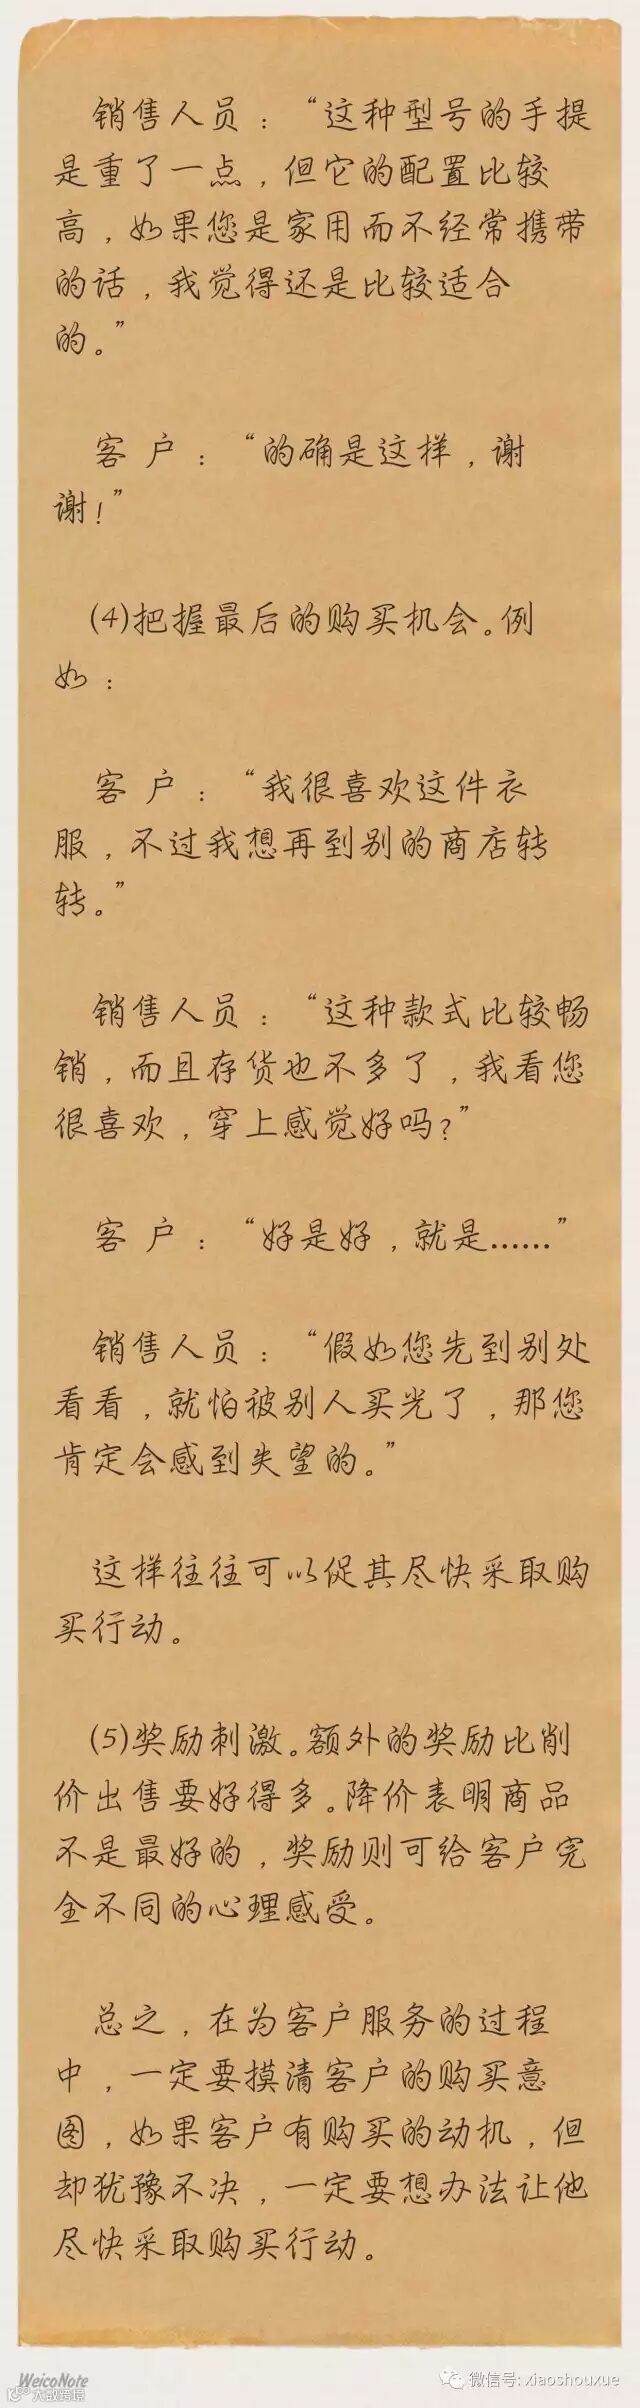 销售人员：“这种型号的手提
是重了一点，但它的配置比较
高，如果您是家用而不经常携带
的话，我觉得还是比较适合
的。”
客 户：“的确是这样，谢
谢！”
(4)把握最后的购买机会。例
如：
客 户：“我很喜欢这件衣
服，不过我想再到别的商店转
转。”
销售人员：“这种款式比较畅
销，而且存货也不多了，我看您
很喜欢，穿上感觉好吗？”
客 户：“好是好，就是……”
销售人员：“假如您先到别处
看看，就怕被别人买光了，那您
肯定会感到失望的。”
这样往往可以促其尽快采取购
买行动。
(5)奖励刺激。额外的奖励比削
价出售要好得多。降价表明商品
不是最好的，奖励则可给客户完
全不同的心理感受。
总之，在为客户服务的过程
中，一定要摸清客户的购买意
图，如果客户有购买的动机，但
却犹豫不决，一定要想办法让他
尽快采取购买行动。
WeicoNote
大数跨境
微信号: xiaoshouxue